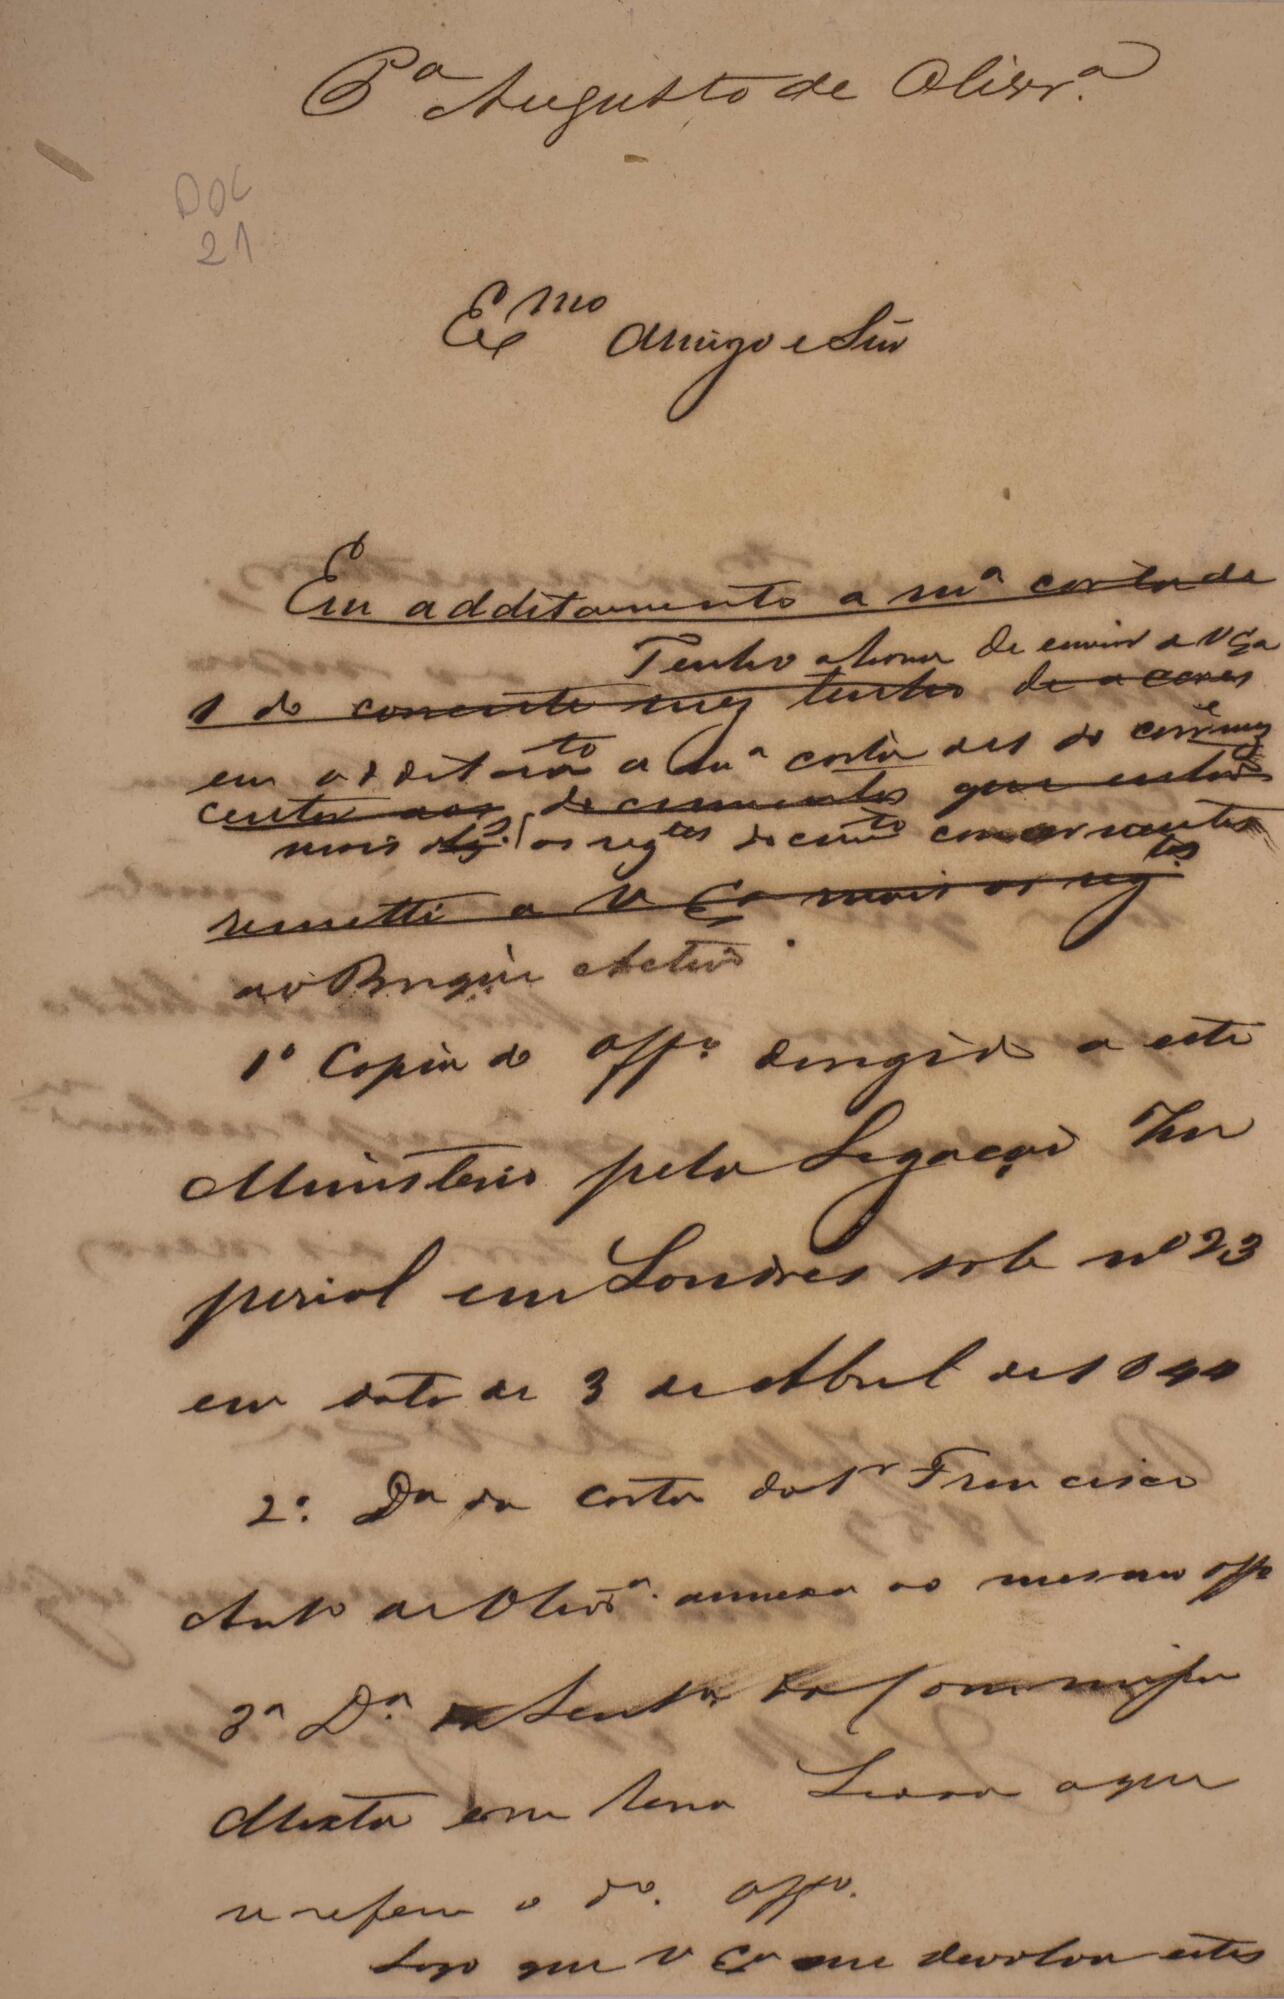 Pª Augusto de Olivrª
DOC
21
Exmo Amigo e Snr
Em additamento a mª carta de
Tenho a honra de enviar a V Exa
1 do corrente mez tenho de accres
em additamto a mª carta de 1 do corrte mez
centar aos documentos que então
mais os segtes documtos concernentes
remetti a V Exa mais os segtes
ao Brigue Activo.
1º Copia do offº dirigido a este
Ministerio pela Legação Im
perial em Londres sob nº 23
em data de 3 de Abril de 1840
2º. Dª da carta do Sr Francisco
Antº de Olivrª. annexa ao mesmo offº
3ª Dª. da Sentª da Commissão
Mixta em Serra Leoa a que
se refere o dº. offº.
Logo que V Exª me devolva estes